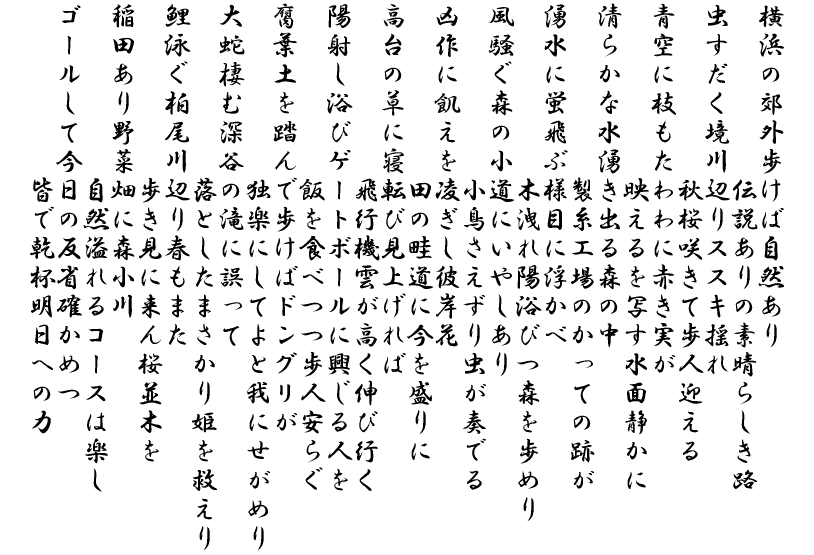 横浜の郊外歩けば自然あり
伝説ありの素晴らしき路
虫すだく境川辺りススキ揺れ
秋桜咲きて歩人迎える
青空に枝もたわわに赤き実が
映えるを写す水面静かに
清らかな水湧き出る森の中
製糸工場のかっての跡が
湧水に蛍飛ぶ様目に浮かべ
木洩れ陽浴びつ森を歩めり
風騒ぐ森の小道にいやしあり
小鳥さえずり虫が奏でる
凶作に飢えを凌ぎし彼岸花
田の畦道に今を盛りに
高台の草に寝転び見上げれば
飛行機雲が高く伸び行く
陽射し浴びゲートボールに興じる人を
飯を食べつつ歩人安らぐ
腐葉土を踏んで歩けばドングリが
独楽にしてよと我にせがめり
大蛇棲む深谷の滝に誤って
落としたまさかり姫を救えり
鯉泳ぐ柏尾川辺り春もまた
歩き見に来ん桜並木を
稲田あり野菜畑に森小川
自然溢れるコースは楽し
ゴールして今日の反省確かめつ
皆で乾杯明日への力